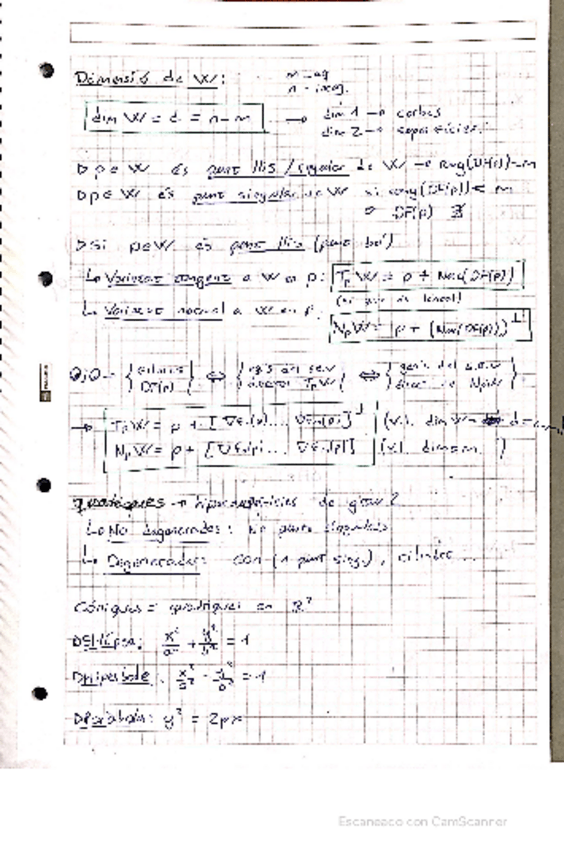 Dimensió de W:
m - eq
n - incog.
dim W = d = n - m → dim 1 → corbes
dim 2 → superfícies.
▷ p ∈ W és punt llis / regular de W → rang(DF(p)) = m
▷ p ∈ W és punt singular de W si rang(DF(p)) < m
o DF(p) ∄
▷ Si p ∈ W és punt llis (punt bo)
↳ Varietat tangent a W en p: TpW = p + Nuc(DF(p))
(si que és lineal)
↳ Varietat normal a W en p: NpW = p + (Nuc(DF(p)))⊥
DF(p) ⇔ TpW ⇔ NpW
→ TpW = p + [∇F₁(p) ... ∇Fₘ(p)]⊥ (v.l. dim W = d = n-m)
NpW = p + [∇F₁(p) ... ∇Fₘ(p)] (v.l. dim = m)
Quàdriques → hipersuperfícies de grau 2
↳ No degenerades: no punts singulars
↳ Degenerades: con (1 punt sing), cilindre ...
Còniques = quàdriques en R²
▷ El·lipse: x²/a² + y²/b² = 1
▷ Hipèrbole: x²/a² - y²/b² = 1
▷ Paràbola: y² = 2px
Escaneado con CamScanner